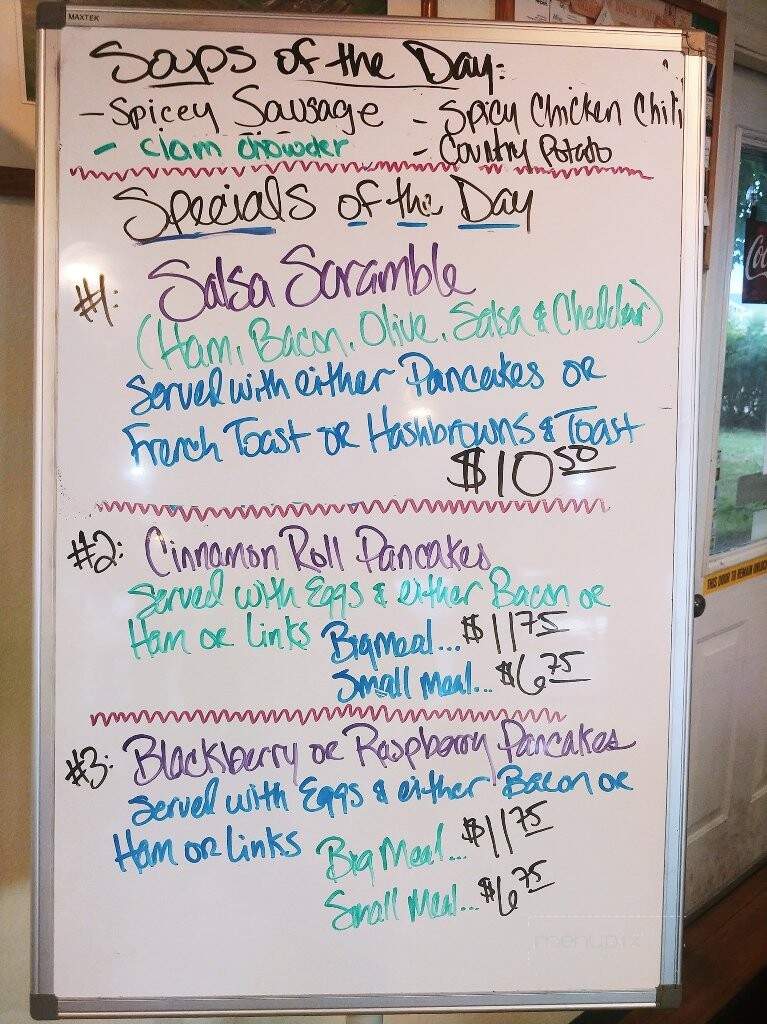 MAXTEK
Soups of the Day:
- Spicey Sausage - Spicy Chicken Chili
- Clam Chowder - Country Potato
Specials of the Day
#1: Salsa Scramble
(Ham, Bacon, Olive, Salsa & Cheddar)
Served with either Pancakes or
French Toast or Hashbrowns & Toast
$10 50
#2: Cinnamon Roll Pancakes
Served with Eggs & either Bacon or
Ham or Links Big Meal... $11 75
Small Meal... $6 75
#3: Blackberry or Raspberry Pancakes
Served with Eggs & either Bacon or
Ham or Links Big Meal... $11 75
Small Meal... $6 75
THIS DOOR TO REMAIN